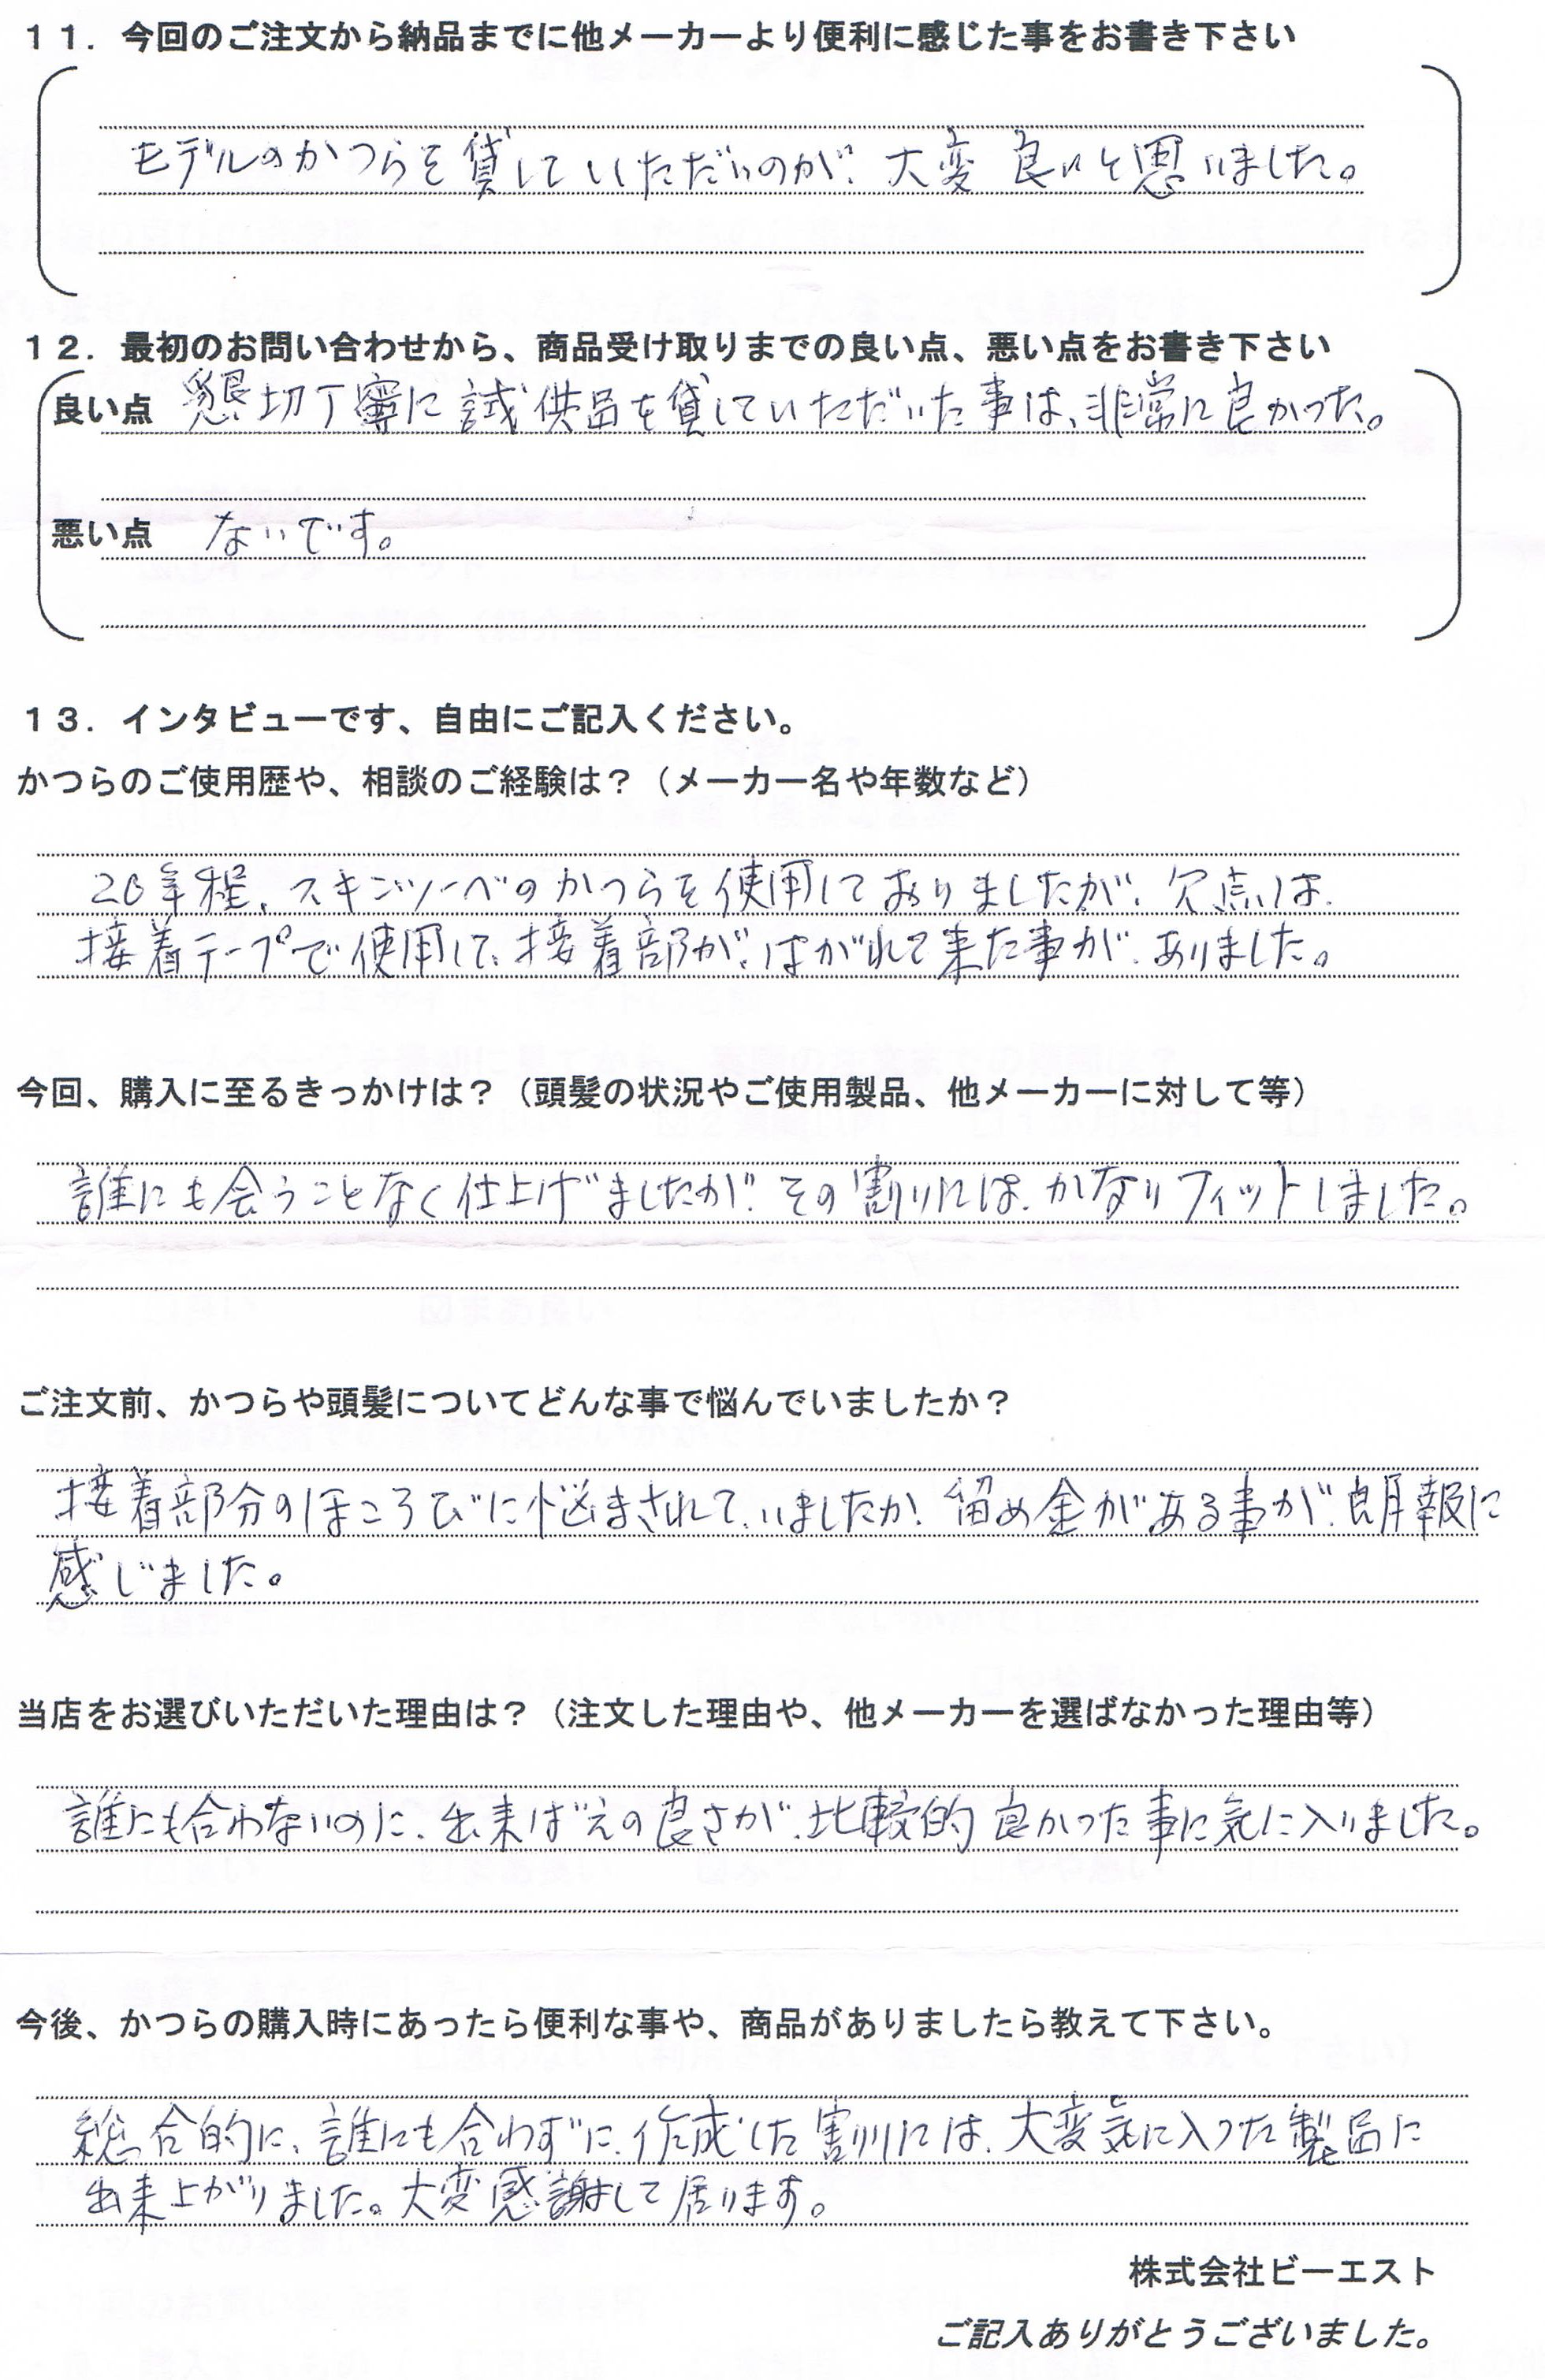 １１．今回のご注文から納品までに他メーカーより便利に感じた事をお書き下さい
モデルのかつらを貸していただいのが、大変良いと思いました。
１２．最初のお問い合わせから、商品受け取りまでの良い点、悪い点をお書き下さい
良い点 懇切丁寧に試供品を貸していただいた事は、非常に良かった。
悪い点 ないです。
１３．インタビューです、自由にご記入ください。
かつらのご使用歴や、相談のご経験は？（メーカー名や年数など）
20年程、スキンソーベのかつらを使用しておりましたが、欠点は、
接着テープで使用して、接着部が、はがれて来た事が、ありました。
今回、購入に至るきっかけは？（頭髪の状況やご使用製品、他メーカーに対して等）
誰にも会うことなく仕上げましたが、その割りには、かなりフィットしました。
ご注文前、かつらや頭髪についてどんな事で悩んでいましたか？
接着部分のほころびに悩まされて、いましたが、留め金がある事が、朗報に
感じました。
当店をお選びいただいた理由は？（注文した理由や、他メーカーを選ばなかった理由等）
誰にも合わないのに、出来ばえの良さが、比較的良かった事に気に入りました。
今後、かつらの購入時にあったら便利な事や、商品がありましたら教えて下さい。
総合的に、誰にも合わずに、作成した割りには、大変気に入った製品に
出来上がりました。大変感謝して居ります。
株式会社ビーエスト
ご記入ありがとうございました。